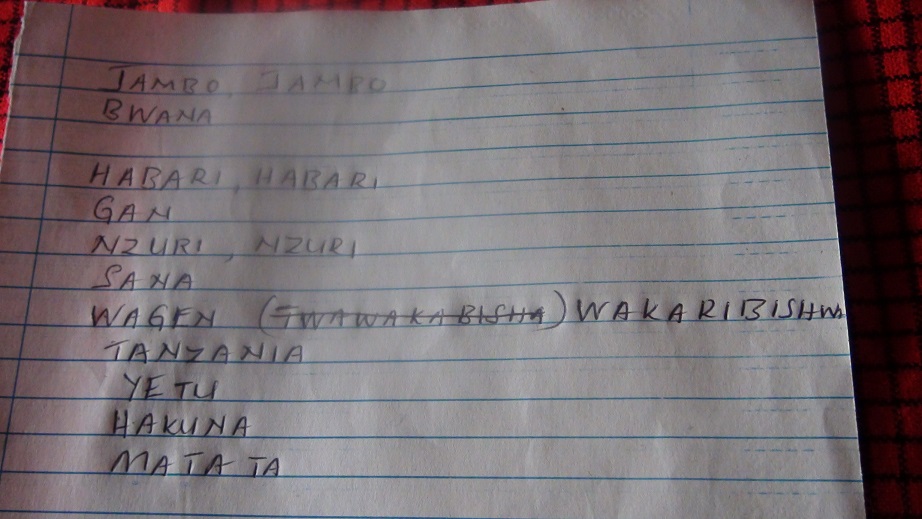 JAMBO, JAMBO
BWANA
HABARI, HABARI
GAN
NZURI, NZURI
SANA
WAGEN (TWAWAKABISHA) WAKARIBISHWA
TANZANIA
YETU
HAKUNA
MATATA